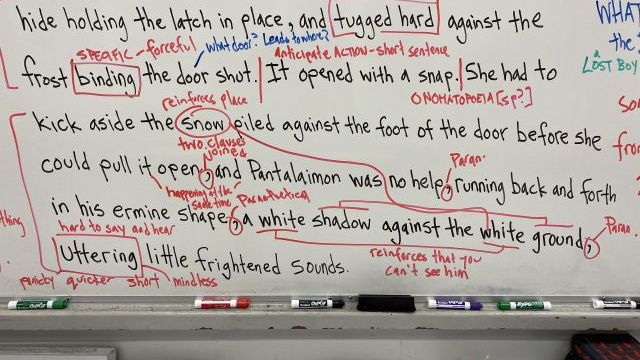 hide holding the latch in place, and tugged hard against the
WHAT
SPECIFIC - forceful
what door? Leads to where?
the
anticipate ACTION - short sentence
LOST BOY
frost binding the door shut. It opened with a snap. She had to
reinforces place
ONOMATOPOEIA [sp?]
so
kick aside the snow piled against the foot of the door before she
two clauses joined
Paran.
from
could pull it open, and Pantalaimon was no help, running back and forth
happening at the same time
Paranthetical
thing
in his ermine shape, a white shadow against the white ground,
Paran.
hard to say and hear
reinforces that you can't see him
Uttering little frightened sounds.
quieter short mindless
EXPO